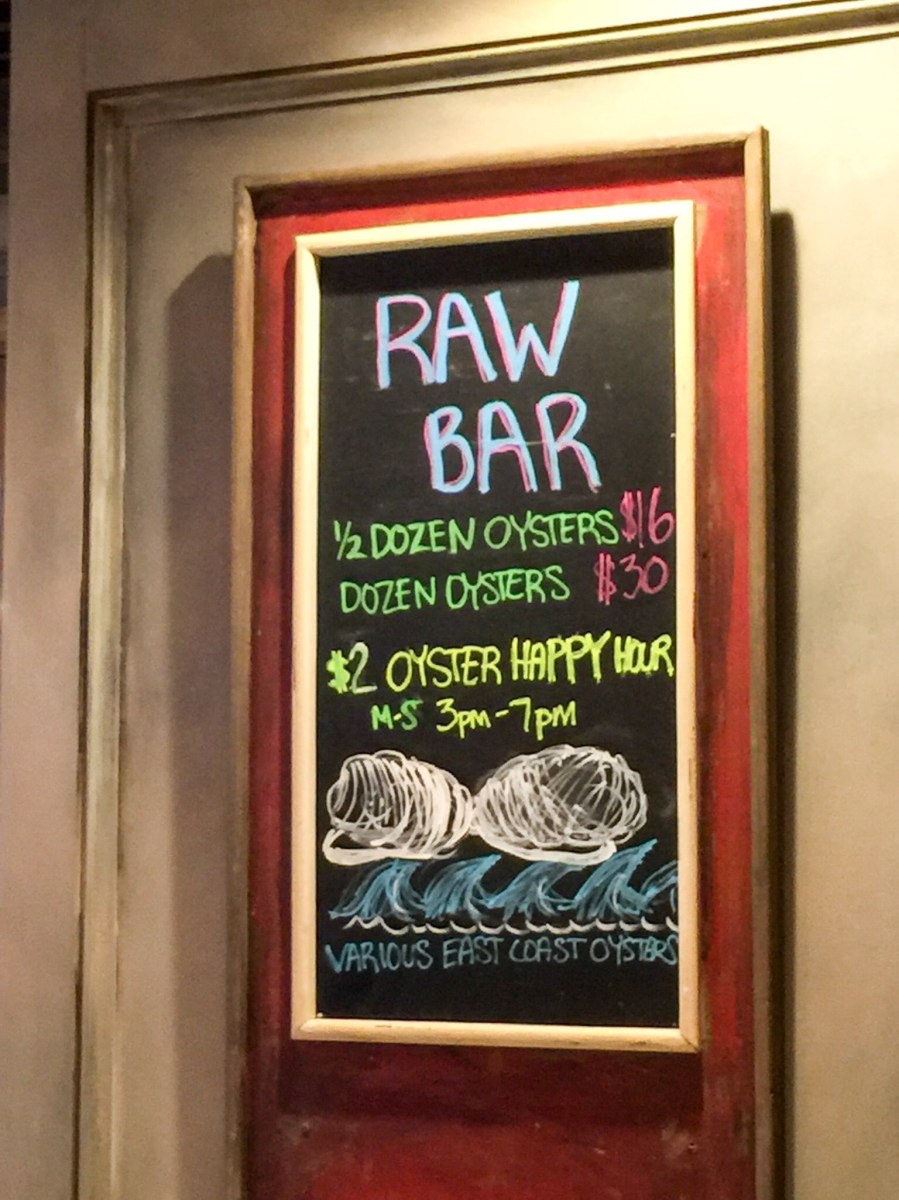 RAW
BAR
½ DOZEN OYSTERS $16
DOZEN OYSTERS $30
$2 OYSTER HAPPY HOUR
M-S 3pm-7pm
VARIOUS EAST COAST OYSTERS